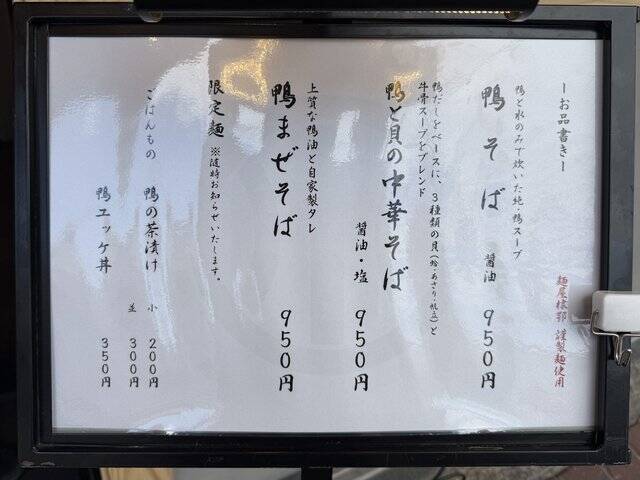 ーお品書きー
麺屋棣鄂 謹製麺使用
鴨と水のみで炊いた純鴨スープ
鴨そば 醤油 950円
鴨だしをベースに、3種類の貝(蛤・あさり・帆立)と
牛骨スープをブレンド
鴨と貝の中華そば
醤油・塩 950円
上質な鴨油と自家製タレ
鴨まぜそば 950円
限定麺 ※随時お知らせいたします。
ごはんもの 鴨の茶漬け 小 200円
並 300円
鴨エッケ丼 350円